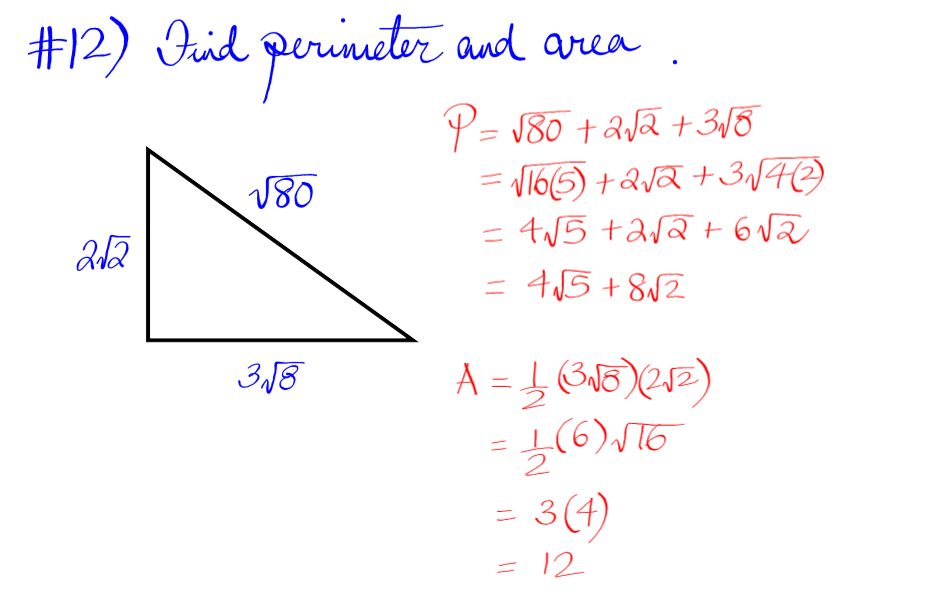 #12) Find perimeter and area .
√80
2√2
3√8
P = √80 + 2√2 + 3√8
= √16(5) + 2√2 + 3√4(2)
= 4√5 + 2√2 + 6√2
= 4√5 + 8√2
A = 1/2 (3√8)(2√2)
= 1/2 (6)√16
= 3(4)
= 12